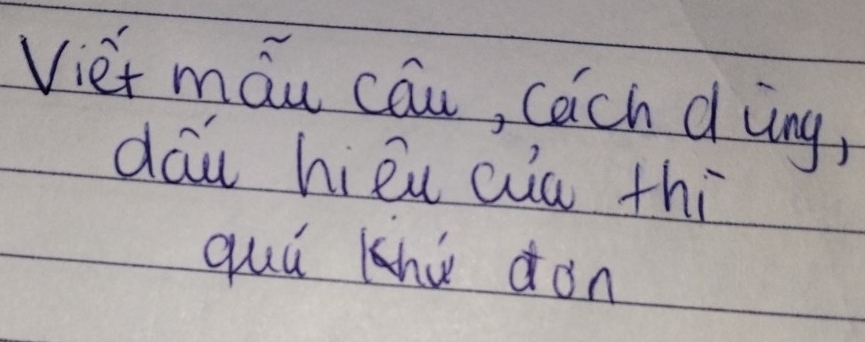 Viết mẫu câu, cách dùng,
dấu hiêu của thì
quá khứ đơn